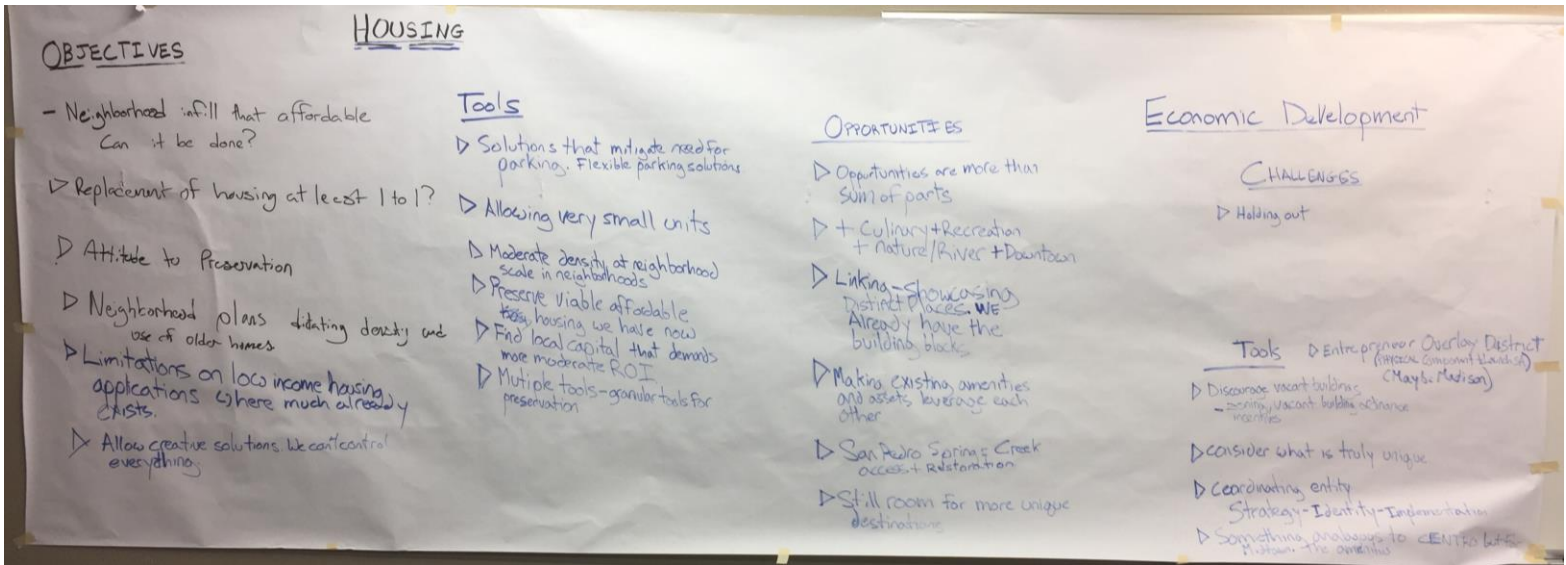 HOUSING
OBJECTIVES
- Neighborhood infill that affordable
Can it be done?
▷ Replacement of housing at least 1 to 1?
▷ Attitude to Preservation
▷ Neighborhood plans dictating density and
use of older homes
▷ Limitations on low income housing
applications where much already
exists.
▷ Allow creative solutions. We can't control
everything
Tools
▷ Solutions that mitigate need for
parking. Flexible parking solutions
▷ Allowing very small units
▷ Moderate density at neighborhood
scale in neighborhoods
▷ Preserve viable affordable
housing we have now
▷ Find local capital that demands
more moderate ROI
▷ Mutiple tools-granular tools for
preservation
OPPORTUNITIES
▷ Opportunities are more than
sum of parts
▷ + Culinary + Recreation
+ nature/River + Downtown
▷ Linking - Showcasing
Distinct places. WE
Already have the
building blocks
▷ Making existing amenities
and assets leverage each
other
▷ San Pedro Springs Creek
access + Restoration
▷ Still room for more unique
destinations
Economic Development
CHALLENGES
▷ Holding out
Tools
▷ Entrepreneur Overlay District
(PHYSICAL Component
(Maybe Madison)
▷ Discourage vacant buildings
- zoning, vacant building ordinance
incentives
▷ consider what is truly unique
▷ Coordinating entity
Strategy-Identity-Implementation
▷ Something analogous to CENTRO but for
Midtown. The amenities